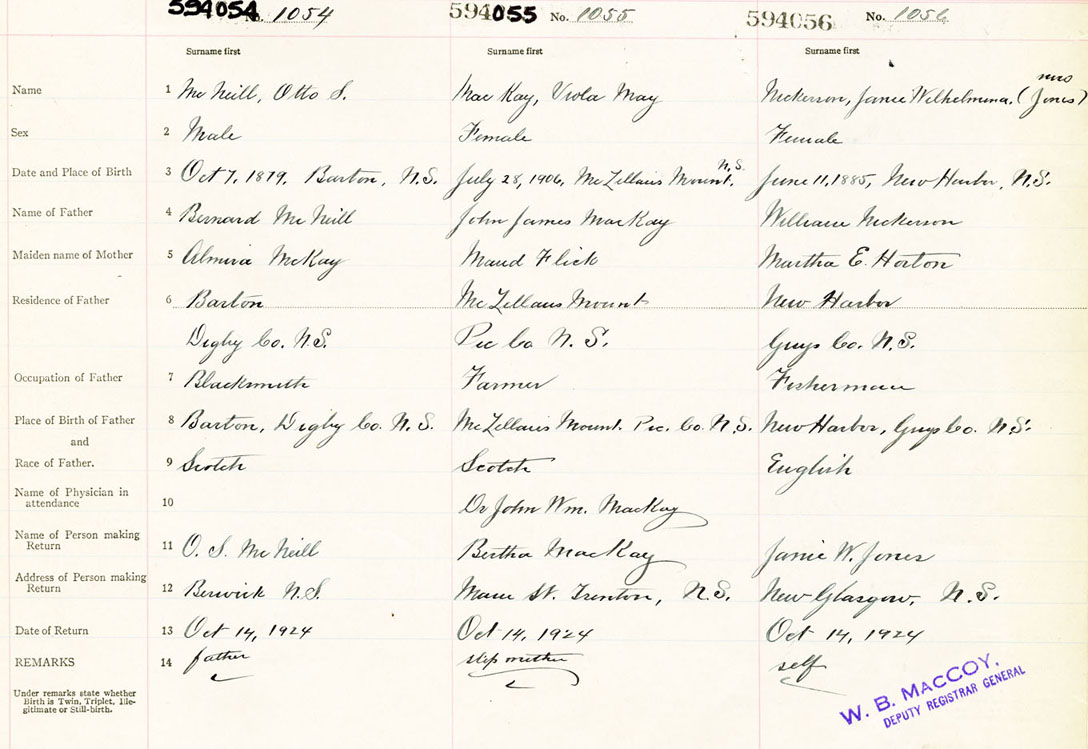 594054 No. 1054 594055 No. 1055 594056 No. 1056
Surname first Surname first Surname first
mrs
Name 1 McNeill, Otto S. MacKay, Viola May Nickerson, Janie Wilhelmina, (Jones)
Sex 2 Male Female Female
N.S.
Date and Place of Birth 3 Oct 7, 1879, Barton, N.S. July 28, 1906, McLellans Mount, June 11, 1885, New Harbor, N.S.
Name of Father 4 Bernard McNeill John James MacKay William Nickerson
Maiden name of Mother 5 Almira McKay Maud Flick Martha E. Horton
Residence of Father 6 Barton McLellans Mount New Harbor
Digby Co. N.S. Pic Co N.S. Guys Co. N.S.
Occupation of Father 7 Blacksmith Farmer Fisherman
Place of Birth of Father 8 Barton, Digby Co. N.S. McLellans Mount. Pic. Co. N.S. New Harbor, Guys Co. N.S.
and
Race of Father. 9 Scotch Scotch English
Name of Physician in
attendance 10 Dr John Wm. MacKay
Name of Person making
Return 11 O. S. McNeill Bertha MacKay Janie W. Jones
Address of Person making
Return 12 Berwick N.S. Main St. Trenton, N.S. New Glasgow, N.S.
Date of Return 13 Oct 14, 1924 Oct 14, 1924 Oct 14, 1924
REMARKS 14 father step mother self
Under remarks state whether
Birth is Twin, Triplet, Ille-
gitimate or Still-birth.
W. B. MACCOY,
DEPUTY REGISTRAR GENERAL